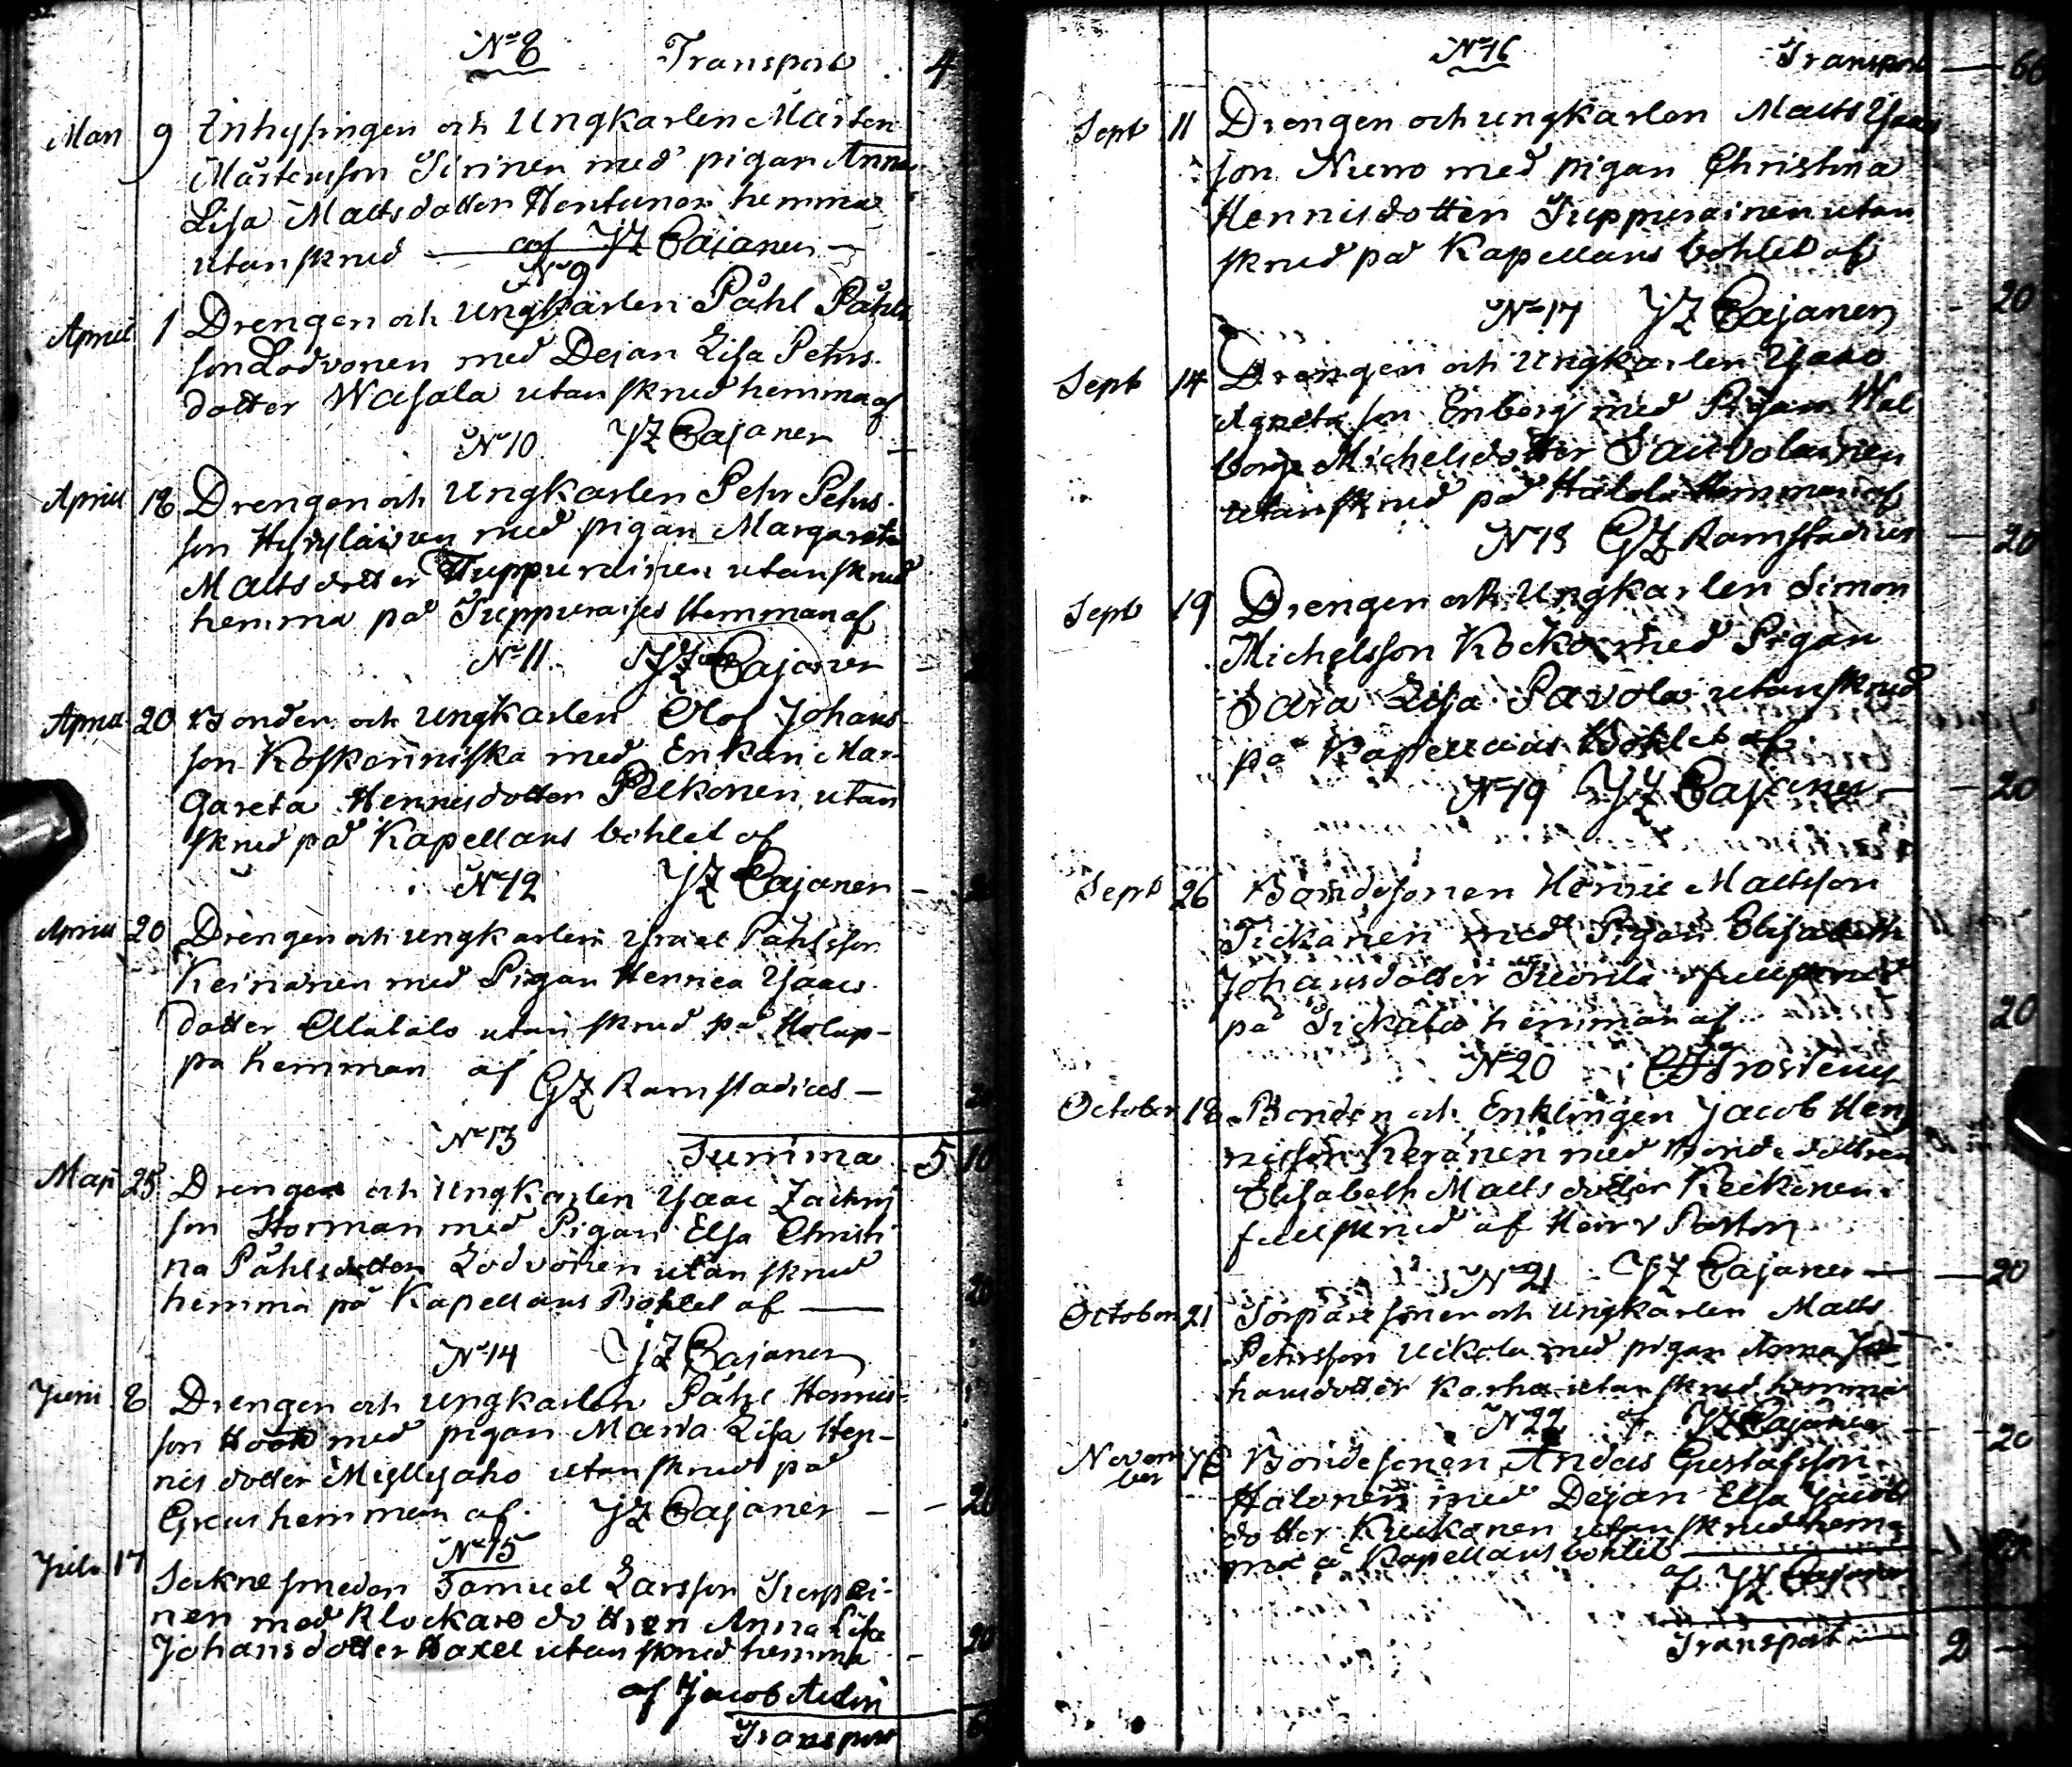 No 8 Transport 4
Mars 9 Inhysingen och Ungkarlen Mårten
Mårtensson Sirinen med pigan Anna
Lisa Mattsdotter Hentunen hemma
utan skrud af JZ Cajanen
No 9
April 1 Drengen och Ungkarlen Påhl Påhls
son Lodvonen med Dejan Lisa Pehrs
dotter Wasala utan skrud hemma af
No 10 JZ Cajanen
April 18 Drengen och Ungkarlen Pehr Pehrs
son med pigan Margareta
Mattsdotter Tuppurainen utan skrud
hemma på Tuppuraises Hemman af
No 11 JZ Cajanen
April 20 Bonden och Ungkarlen Olof Johans
son Koskenniska med Enkan Mar
gareta Hennisdotter Pelkonen utan
skrud på Kapellans bohlet af
No 12 JZ Cajanen
April 20 Drengen och Ungkarlen Israel Påhlsson
Keinänen med Pigan Hennea Isaacs
dotter Alatalo utan skrud på Holap-
pa hemman af
GZ Ramstadius 20
No 13 Summa 5 10
Maji 25 Drengen och Ungkarlen Isaac Zachris
son Storman med Pigan Elsa Christi
na Påhlsdotter Lodvonen utan skrud
hemma på Kapellans Bohlet af 20
No 14 JZ Cajanen
Juni 8 Drengen och Ungkarlen Påhl Hennis
son Höök med pigan Maria Lisa Hen-
nis dotter Myllyaho utan skrud på
Greus hemman af JZ Cajanen 20
No 15
Juli 17 Sokne smeden Samuel Larsson Kurpei-
nen med Klockare dottren Anna Lisa 20
Johansdotter Haxel utan skrud hemma
af Jacob
Transport 6
No 16 Transport 6
Sept 11 Drengen och Ungkarlen Matts Isaacs
son Niemo med pigan Christina
Hennisdotter Tuppurainen utan
skrud på Kapellans bohlet af
No 17 JZ Cajanen 20
Sept 14 Drengen och Ungkarlen Isaac
Agneta son Enberg med Pigan Wal
borg Michelsdotter Sauvolainen
utan skrud på Halola Hemman af
No 18 GZ Ramstadius 20
Sept 19 Drengen och Ungkarlen Simon
Michelsson Kocko med Pigan
Sara Lisa Pavola utan skrud
på Kapellans Bohlet af
No 19 JZ Cajanen 20
Sept 26 Bondesonen Hennic Mattsson
Tickanen med Pigan Elisabeth
Johansdotter full skrud
på Tickala hemman af 20
No 20 CJ Frosterus
October 18 Bonden och Enklingen Jacob Hen
nisson Keränen med Bonde dottren
Elisabeth Matts dotter Keckonen
full skrud af Herr Pastor
No 21 JZ Cajanen 20
October 21 Torpare sonen och Ungkarlen Matts
Pehrsson Uckola med pigan Anna Jo-
hansdotter Karhu utan skrud hemma
No 22 af JZ Cajanen 20
Novem
ber 16 Bondesonen Andas Gustafsson
Halonen med Dejan Elsa Jacobs
dotter Kuckonen utan skrud hem-
ma å Kapellans bohlet
af JZ Cajanen
Transport 2